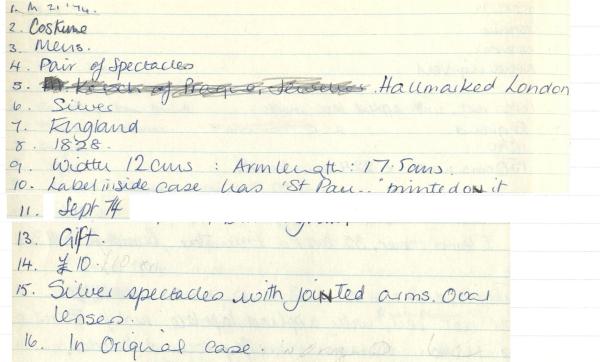 1. M 21 '74.
2. Costume
3. Mens.
4. Pair of Spectacles
5. of Prague, Jeweller. Hallmarked London
6. Silver
7. England
8. 1828.
9. Width 12cms : Arm length : 17.5cms.
10. Label inside case has 'St Pau..' printed on it
11. Sept 74
13. Gift.
14. £10.
15. Silver spectacles with jointed arms. Oval
lenses.
16. In Original case.